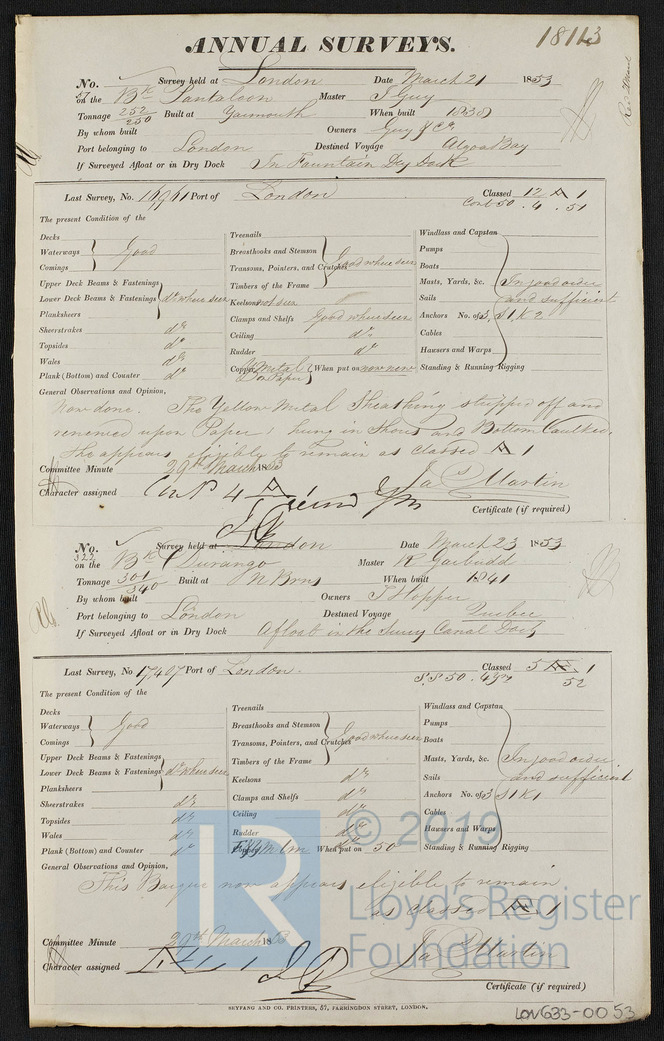 ANNUAL SURVEYS.
No. Survey held at London Date March 21 1853
57 on the Bk Pantaloon Master J Guy
Tonnage 252/250 Built at Yarmouth When built 1838
By whom built Owners Guy & Co.
Port belonging to London Destined Voyage Algoa Bay
If Surveyed Afloat or in Dry Dock In Fountain Dry Dock
Last Survey, No. Port of London Classed 12 A 1
Cont 50 . 4 . 51
The present Condition of the
Decks
Waterways Good
Comings
Upper Deck Beams & Fastenings
Lower Deck Beams & Fastenings do where seen
Planksheers
Sheerstrakes do
Topsides do
Wales do
Plank (Bottom) and Counter do
Treenails
Breasthooks and Stemson
Transoms, Pointers, and Crutches Good where seen
Timbers of the Frame
Keelsons not seen
Clamps and Shelfs Good where seen
Ceiling do
Rudder do
Copper Y Metal When put on now new
Do Paper
Windlass and Capstan
Pumps
Boats
Masts, Yards, &c. In good order
Sails and sufficient
Anchors No. of 3, S1, K2
Cables
Hausers and Warps
Standing & Running Rigging
General Observations and Opinion,
Now done. The Yellow Metal Sheathing stripped off and
renewed upon Paper, hung in Shores and Bottom Caulked.
She appears eligible to remain as Classed A 1
Committee Minute 29th March 1853
Character assigned Cont 4 A 1
Jas Martin
Certificate (if required)
No. Survey held at London Date March 23 1853
on the Bk Durango Master R Garbudd
Tonnage 301/340 Built at N Brns When built 1841
By whom built Owners T Hopper
Port belonging to London Destined Voyage Quebec
If Surveyed Afloat or in Dry Dock Afloat in the Surrey Canal Dock
Last Survey, No 17,407 Port of London. Classed 5 Æ 1
S.S 50 . 4 yrs 52
The present Condition of the
Decks
Waterways Good
Comings
Upper Deck Beams & Fastenings
Lower Deck Beams & Fastenings do where seen
Planksheers
Sheerstrakes do
Topsides do
Wales do
Plank (Bottom) and Counter do
Treenails
Breasthooks and Stemson
Transoms, Pointers, and Crutches Good where seen
Timbers of the Frame
Keelsons do
Clamps and Shelfs do
Ceiling do
Rudder do
When put on 50
Windlass and Capstan
Pumps
Boats
Masts, Yards, &c. In good order
Sails and sufficient
Anchors No. of 3 S1 K1
Cables
Hausers and Warps
Standing & Running Rigging
General Observations and Opinion,
This Barque now appears eligible to remain
as classed Æ 1
Committee Minute 29th March 1853
Character assigned
Jas Martin
Certificate (if required)
SEYFANG AND CO. PRINTERS, 57, FARRINGDON STREET, LONDON.
LR © 2019
Lloyd's Register
Foundation
LON633-0053